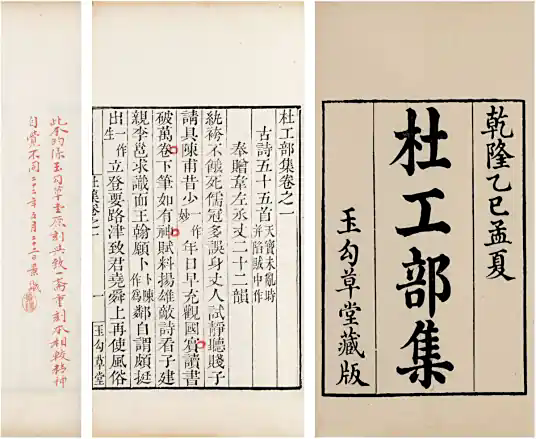 乾隆乙巳孟夏
杜工部集
玉勾草堂藏版
杜工部集卷之一
古詩五十五首天寶未亂時并陷賊中作
奉贈韋左丞丈二十二韻
紈袴不餓死儒冠多誤身丈人試靜聽賤子
請具陳甫昔少一作妙年日早充觀國賓讀書
破萬卷下筆如有神賦料揚雄敵詩看子建
親李邕求識面王翰願卜卜陳作為鄰自謂頗挺
出一作生立登要路津致君堯舜上再使風俗
杜集卷之一 一 玉勾草堂
此本的係玉勾草堂原刻與致一齋重刻本相較精神
自覺不同